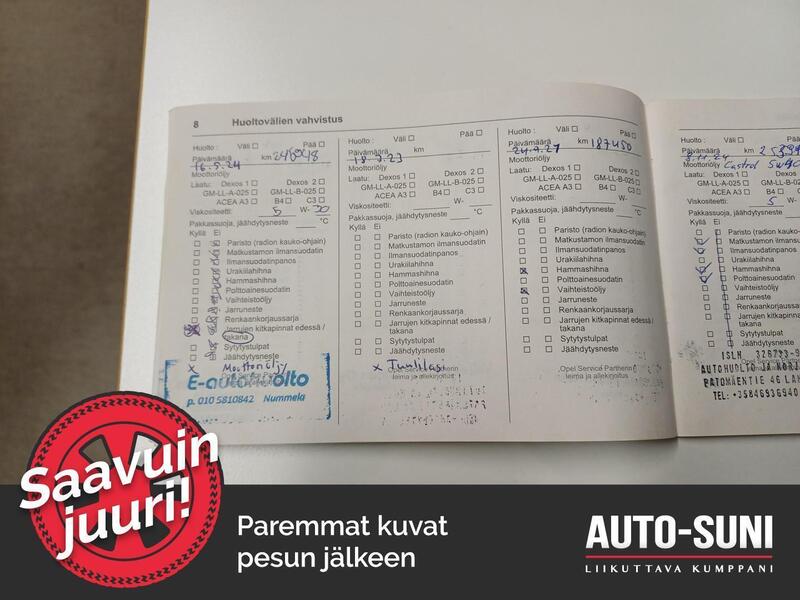 8 Huoltovälien vahvistus
Huolto : Väli Pää
Päivämäärä km 246948
16.5.24
Moottoriöljy
Laatu: Dexos 1 Dexos 2
GM-LL-A-025 GM-LL-B-025
ACEA A3 B4 C3
Viskositeetti: 5 W- 30
Pakkassuoja, jäähdytysneste °C
Kyllä Ei
Paristo (radion kauko-ohjain)
Matkustamon ilmansuodatin
Ilmansuodatinpanos
Urakiilahihna
Hammashihna
Polttoainesuodatin
Vaihteistoöljy
Jarruneste
Renkaankorjaussarja
Jarrujen kitkapinnat edessä /
takana
Sytytystulpat
Jäähdytysneste
x Moottoriöljy
p. 010 5810842 Nummela
Huolto : Väli Pää
Päivämäärä km
Moottoriöljy
Laatu: Dexos 1 Dexos 2
GM-LL-A-025 GM-LL-B-025
ACEA A3 B4 C3
Viskositeetti: W-
Pakkassuoja, jäähdytysneste °C
Kyllä Ei
Paristo (radion kauko-ohjain)
Matkustamon ilmansuodatin
Ilmansuodatinpanos
Urakiilahihna
Hammashihna
Polttoainesuodatin
Vaihteistoöljy
Jarruneste
Renkaankorjaussarja
Jarrujen kitkapinnat edessä /
takana
Sytytystulpat
Jäähdytysneste
x Tuulilasi
Opel Service Partnerin
leima ja allekirjoitus
Huolto : Väli Pää
Päivämäärä km 187450
Moottoriöljy
Laatu: Dexos 1 Dexos 2
GM-LL-A-025 GM-LL-B-025
ACEA A3 B4 C3
Viskositeetti: W-
Pakkassuoja, jäähdytysneste °C
Kyllä Ei
Paristo (radion kauko-ohjain)
Matkustamon ilmansuodatin
Ilmansuodatinpanos
Urakiilahihna
x Hammashihna
Polttoainesuodatin
x Vaihteistoöljy
Jarruneste
Renkaankorjaussarja
Jarrujen kitkapinnat edessä /
takana
Sytytystulpat
Jäähdytysneste
Opel Service Partnerin
leima ja allekirjoitus
Huolto : Väli
Päivämäärä km
Moottoriöljy Castrol
Laatu: Dexos 1
GM-LL-A-025
ACEA A3
Viskositeetti: 5
Pakkassuoja, jäähdytysneste
Kyllä Ei
Paristo (radion
Matkustamon
Ilmansuodatin
Urakiilahihna
Hammashihna
Polttoainesuo
Vaihteistoöljy
Jarruneste
Renkaankorja
Jarrujen kitka
takana
Sytytystulpat
Jäähdytysneste
AUTOHUOLTO JA
RATOMÄENTIE 46
TEL: +35846936940
Saavuin
juuri!
Paremmat kuvat
pesun jälkeen
AUTO-SUNI
LIIKUTTAVA KUMPPANI